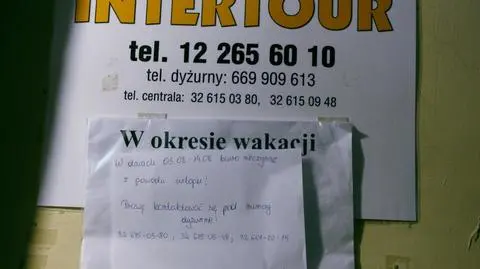 INTERTOUR
tel. 12 265 60 10
tel. dyżurny: 669 909 613
tel. centrala: 32 615 03 80, 32 615 09 48
W okresie wakacji
W dniach 03.08-14.08 biuro nieczynne
z powodu urlopu!
Proszę kontaktować się pod numery
dyżurne!
32 615-03-80,